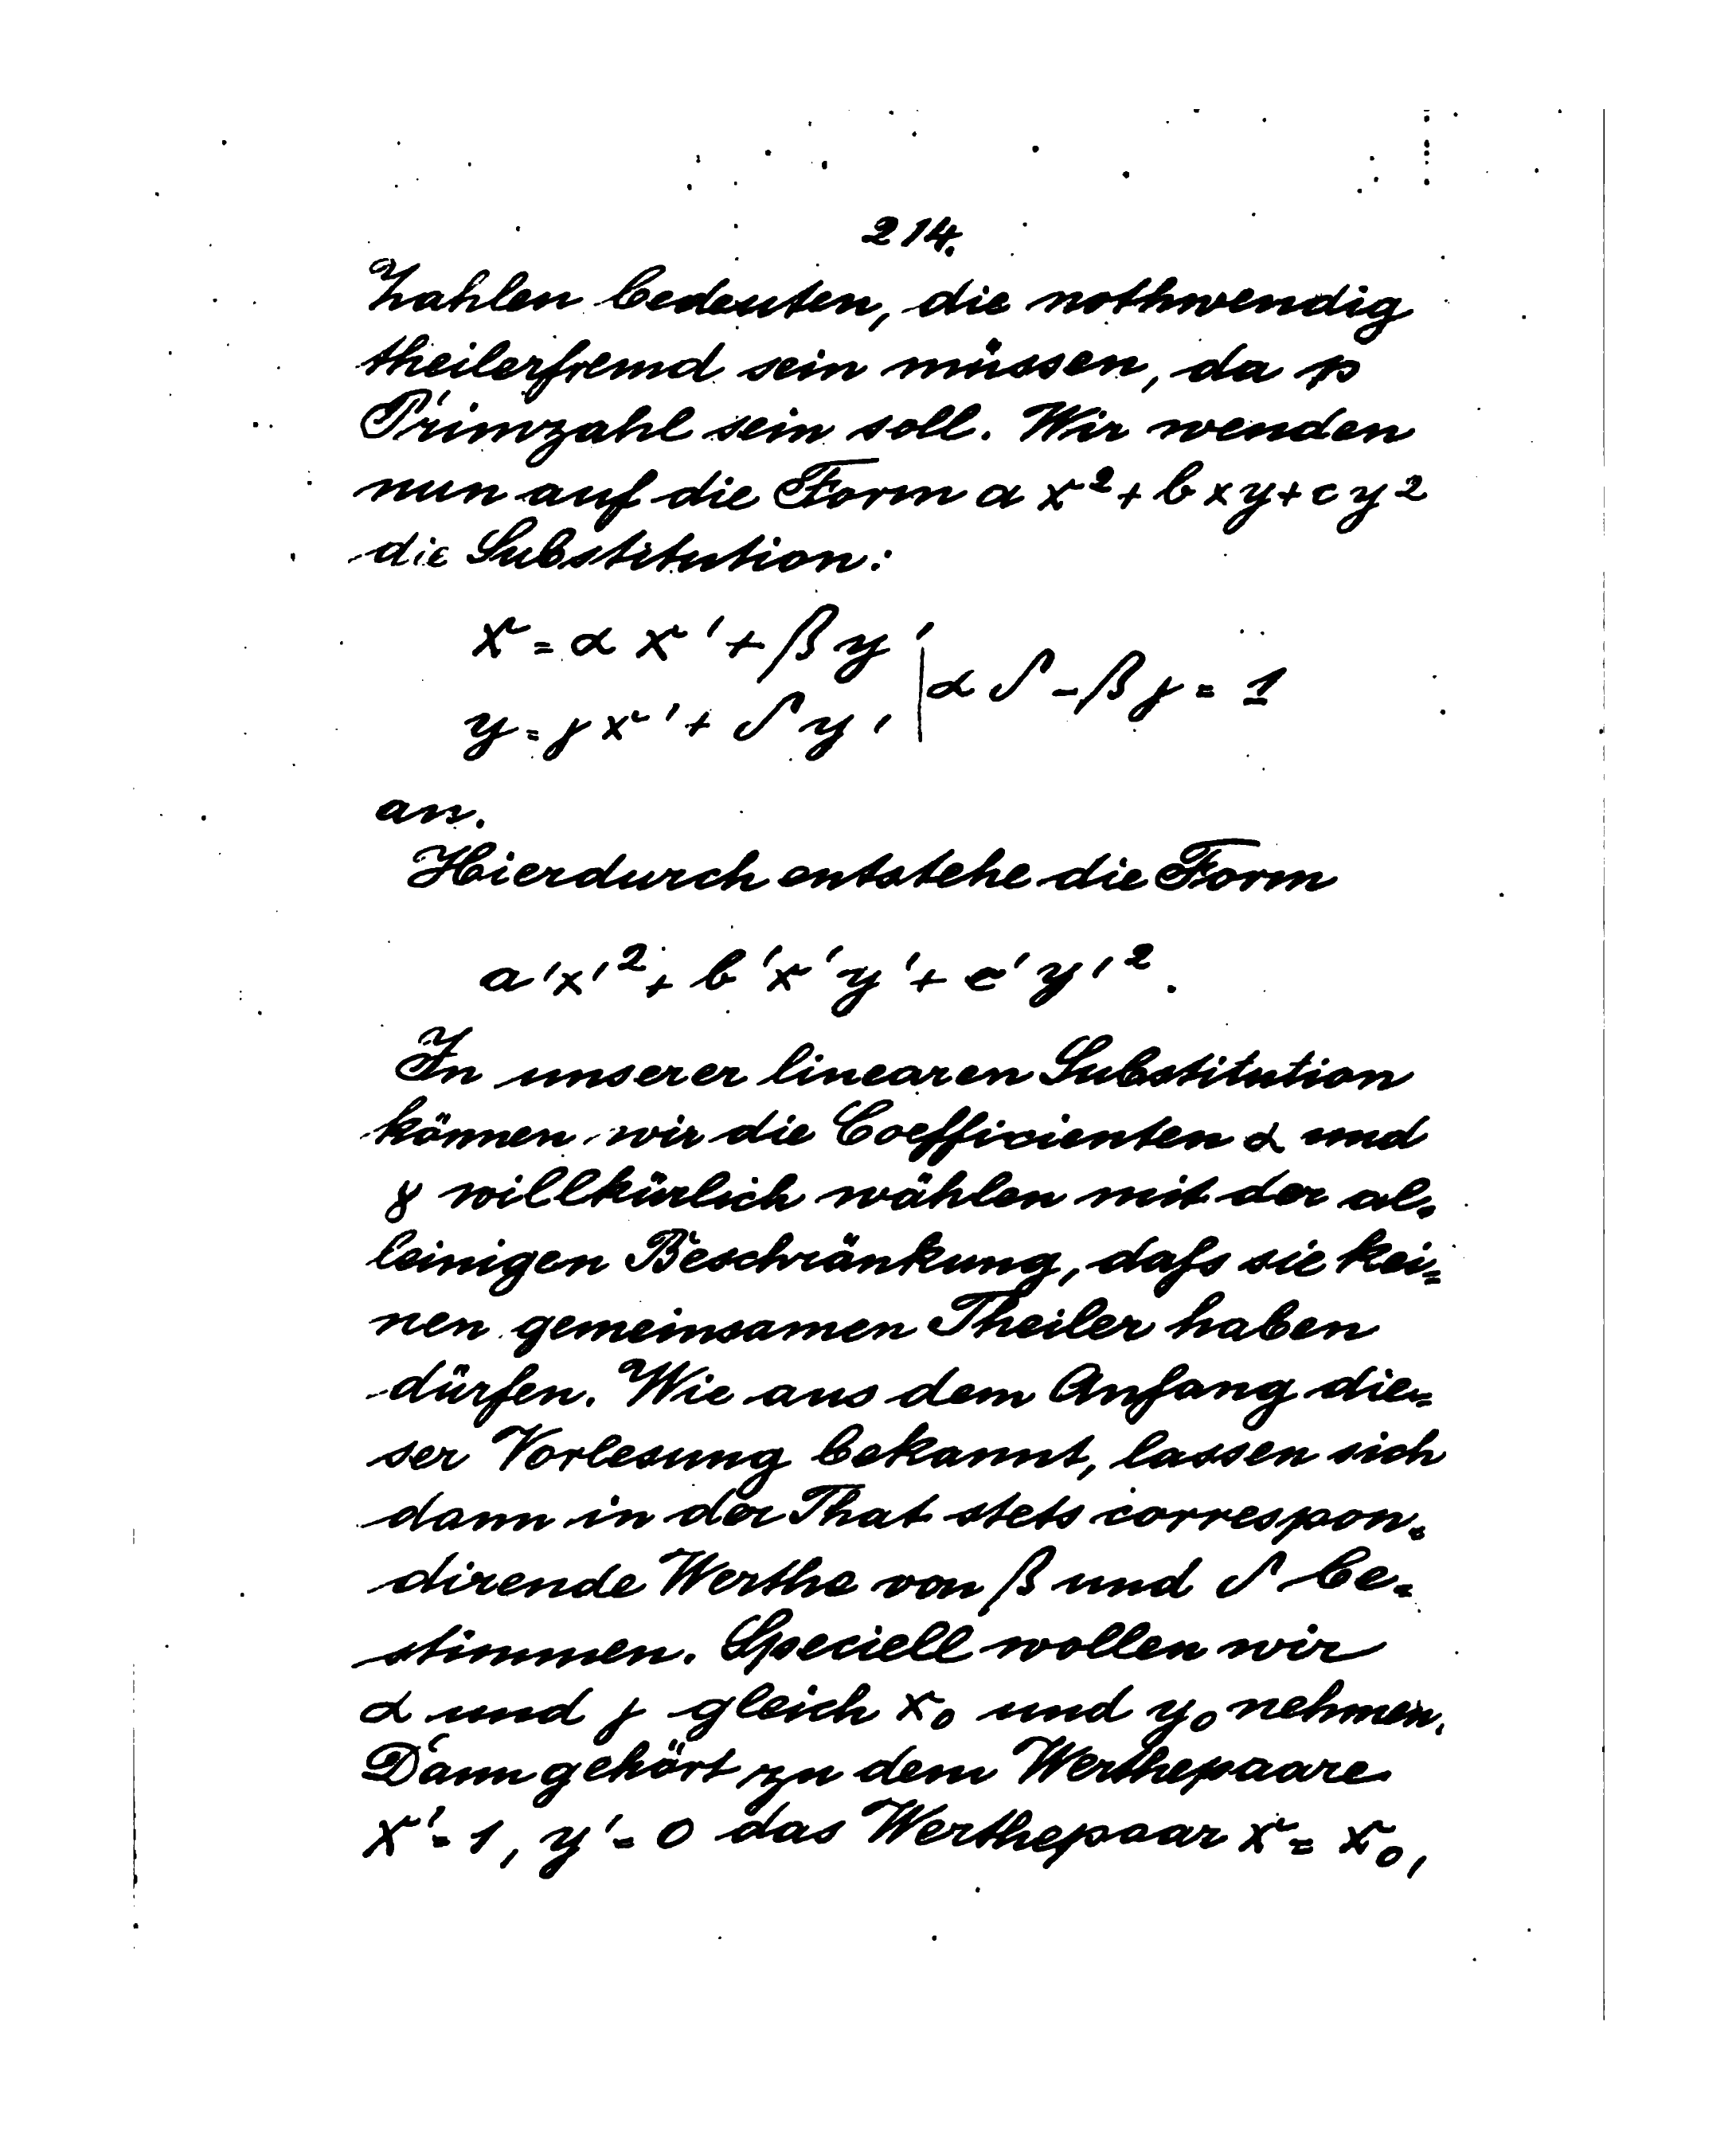 214.
Zahlen bedeuten, die nothwendig
theilerfremd sein müssen, da p
Primzahl sein soll. Wir wenden
nun auf die Form a x² + b x y + c y²
die Substitution:
x = α x' + β y'
y = γ x' + δ y' | α δ - β γ = 1
an.
Hierdurch entstehe die Form
a'x'² + b'x'y' + c'y'².
In unserer linearen Substitution
können wir die Coefficienten α und
γ willkürlich wählen mit der al=
leinigen Beschränkung, dafs sie kei=
nen gemeinsamen Theiler haben
dürfen. Wie aus dem Anfang die=
ser Vorlesung bekannt, lassen sich
dann in der That stets correspon=
dirende Werthe von β und δ be=
stimmen. Speciell wollen wir
α und γ gleich x₀ und y₀ nehmen.
Dann gehört zu dem Werthepaare
x' = 1, y' = 0 das Werthepaar x = x₀,